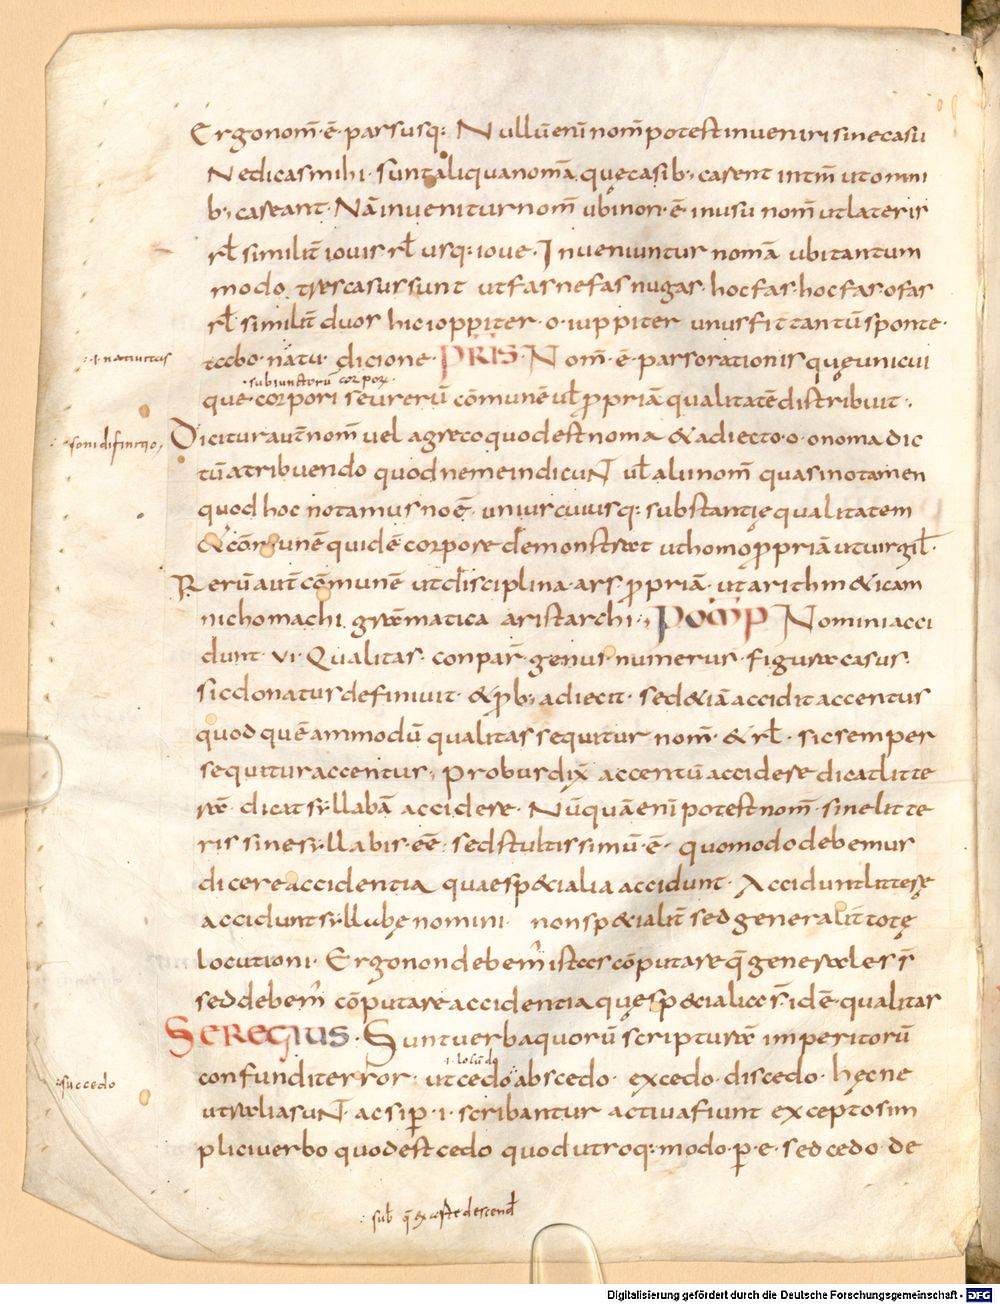 Ergonom̄·ē·parsusq: Nullū enī nom̄ potest inveniri sine casu
Ne dicas mihi· sunt aliqua nomā quę casib; carent intm̄ ut omni
b; careant· Nā invenitur nom̄ ubi non·ē· in usu nom̄ ut lateris
rł similit̄ iovis rł usq: iove· Inveniuntur nomā ubi tantum
modo tres casus sunt ut fas nefas nugas· hoc fas· hoc fas· o fas
rł similit̄ duo hic ioppiter· o· iuppiter unus fit tantū sponte·
:·i· nativitas
et cobo· natu· dicione· PRIS· Nom̄·ē· pars orationis quę unicui
·subiunctorū corpor·
que corpori seu rerū cōmunē uł ppriā qualitatē distribuit·
Dicitur aut̄ nom̄ vel a greco quod est noma & adiecto·o·onoma dic
:soni distinctio
tū a tribuendo quod nemein dicuN uł alii nom̄ quasi notamen
quod hoc notamus no ē· unius cuiusq: substantię qualitatem
& cōmunē quidē corpore demonstrat ut homo ppriā ut virgił·
Rerū aut̄ cōmunē ut disciplina· ars· ppriā· ut arithm&ica
nichomachi grāmatica aristarchi·, POMP Nomini acci
dunt·VI·Qualitas· conpar̄· genus· numerus· figura casus·
sic donatus definivit· & pb; adiecit· sed &iā accidit accentus
quod quē ammodū qualitas sequitur nom̄· & rł· sic semper
sequitur accentus, probus dix̄ accentū accidere dicat litte
rā· dicat syllabā accidere· Nūquā enī potest nom̄· sine litte
ris sine syllabis·eē· sed stultissimū·ē· quomodo debemus
dicere accidentia quae sp&ialia accidunt· Accidunt litterę
accidunt syllabę nomini· non sp&ialit̄ sed generalit̄ totę
locutioni· Ergo non debem̄ istas cōputare q̄ generales s̄
sed debem̄ cōputare accidentia quę sp&ialia s̄ idē· qualitas
SEREGIUS· Sunt verba quorū scripturā imperitorū
·i· locū do
confundit error· ut cedo abscedo· excedo· discedo· hęc ne
:succedo
ut alia suN· ac si p·i· scribantur activa fiunt excepto sim
plici verbo quod est cedo quod utroq: modo·p·e· sed cedo· de
: sub q̄ ex a descend
Digitalisierung gefördert durch die Deutsche Forschungsgemeinschaft - DFG